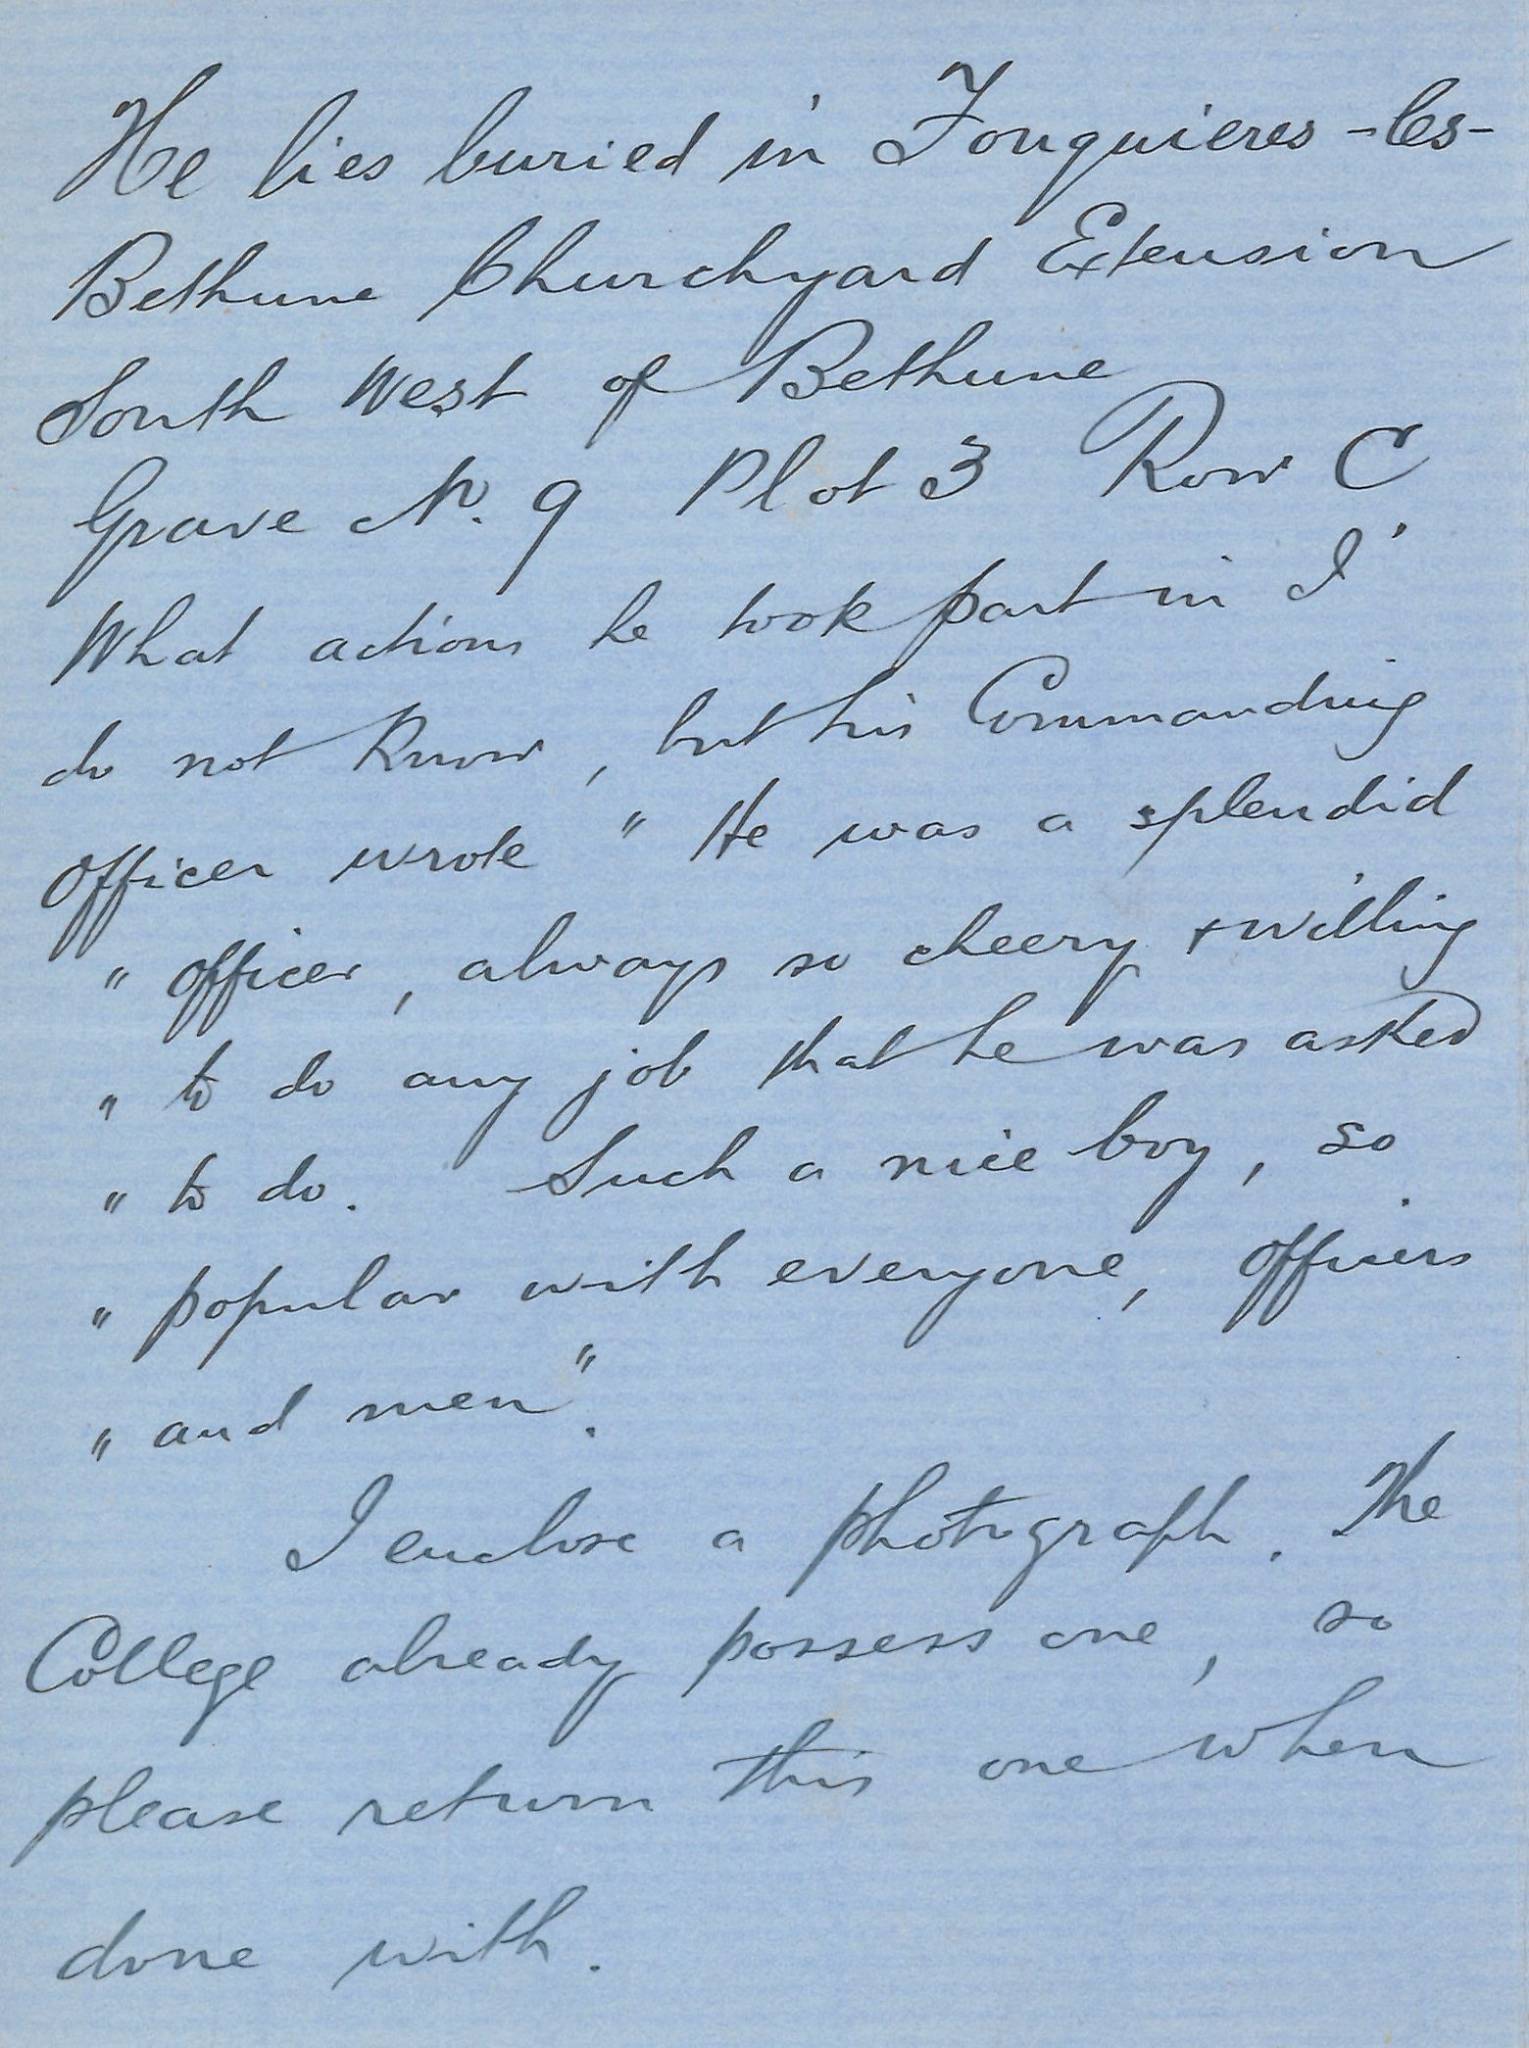 He lies buried in Fouquieres-les-
Bethune Churchyard Extension
South West of Bethune
Grave No. 9 Plot 3 Row C
What actions he took part in I
do not know, but his Commanding
Officer wrote " He was a splendid
" officer, always so cheery + willing
" to do any job that he was asked
" to do. Such a nice boy, so
" popular with everyone, officers
" and men".
I enclose a photograph. The
College already possess one, so
please return this one when
done with.